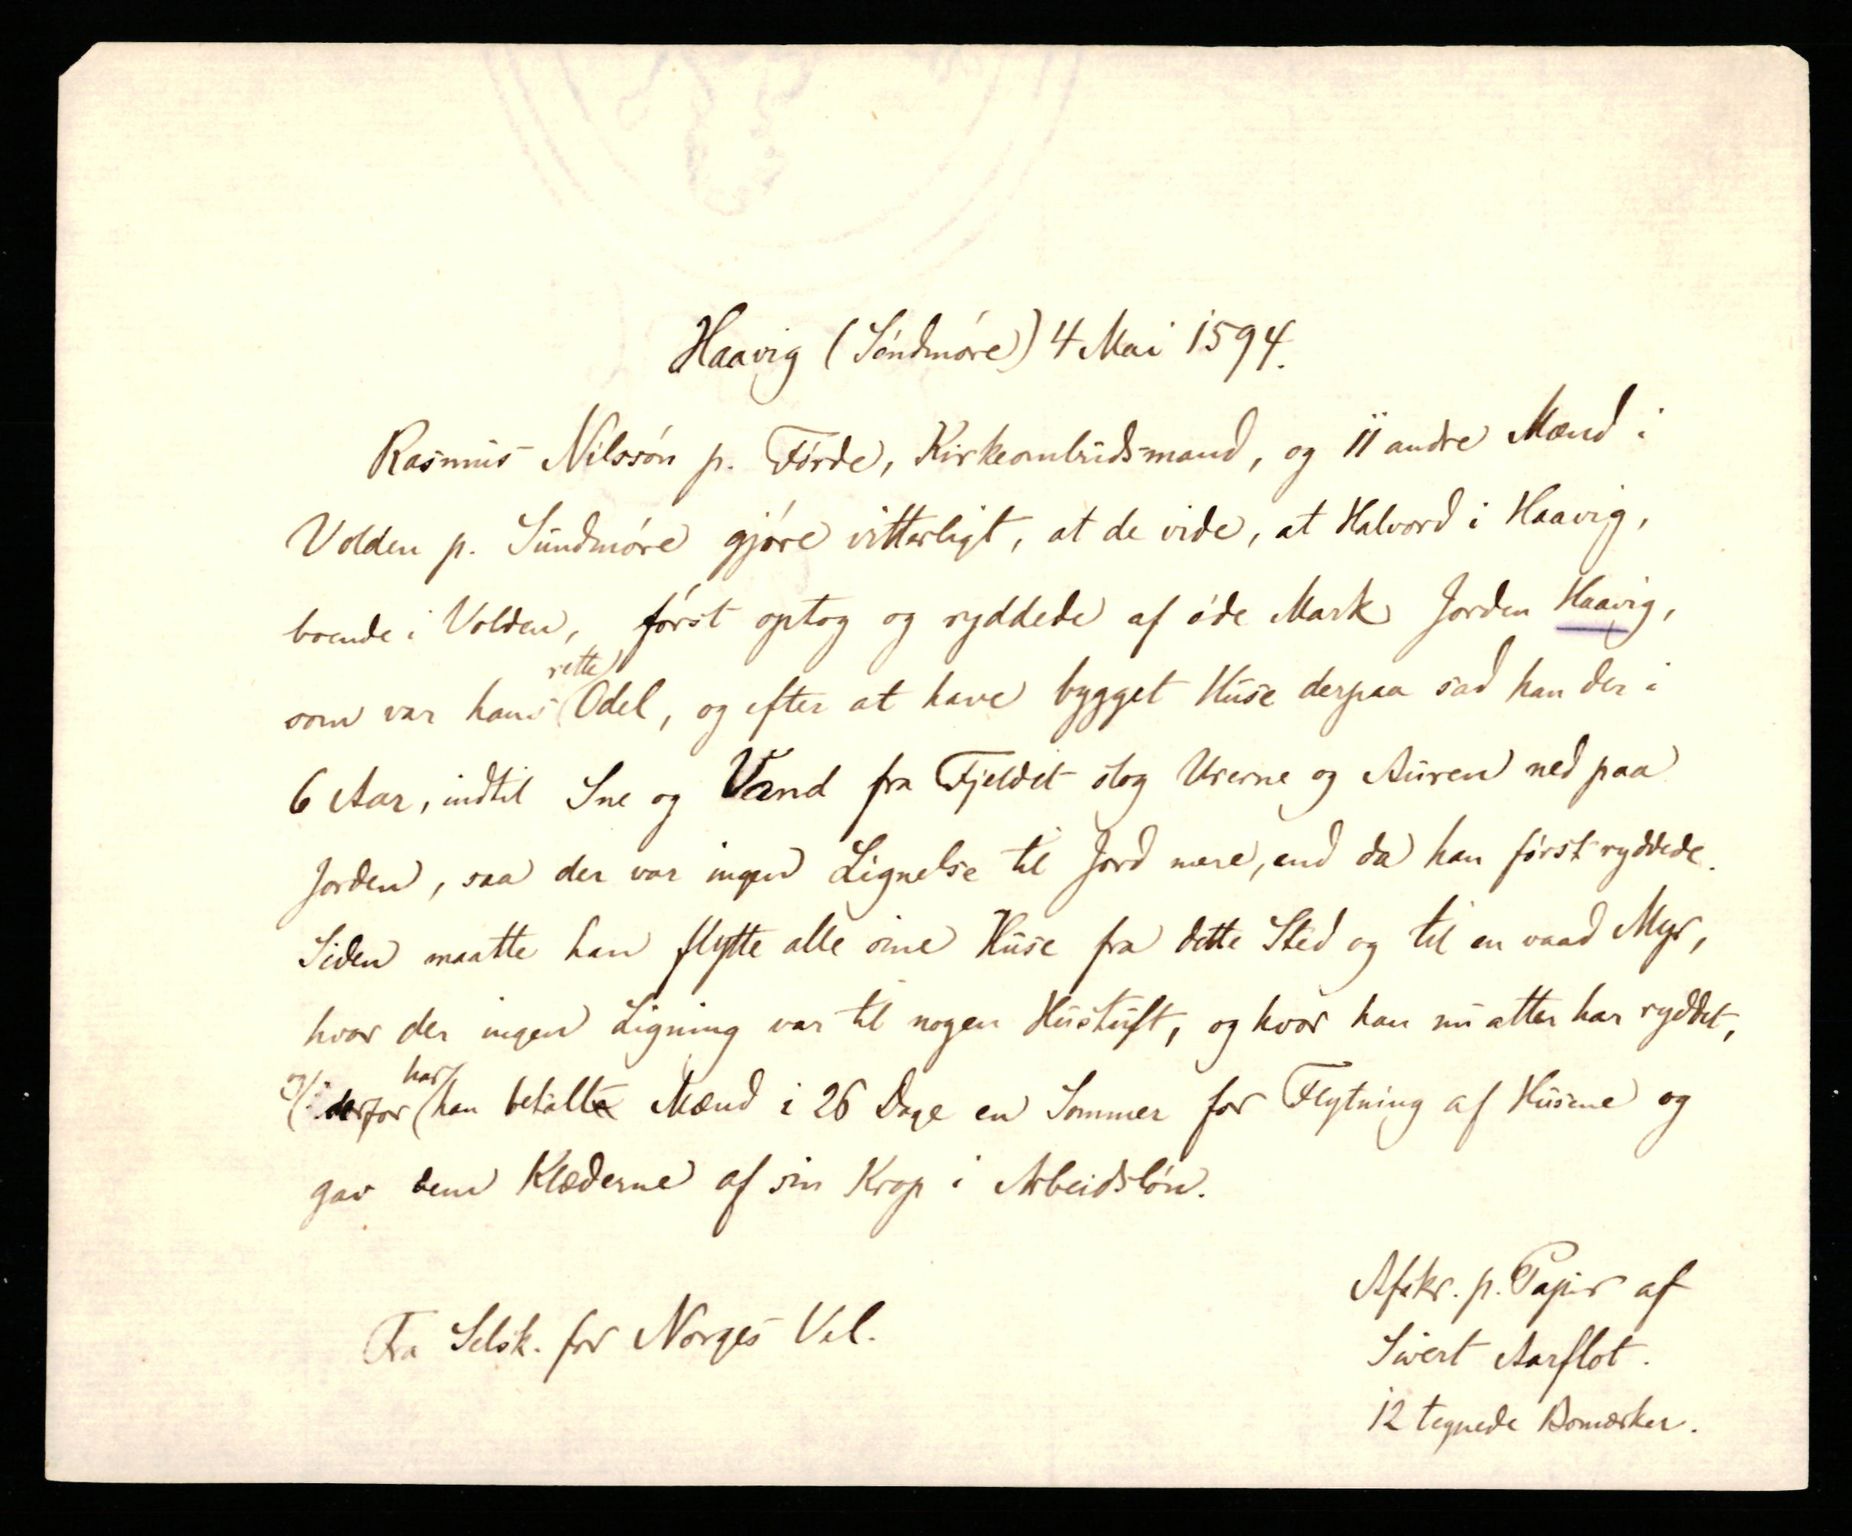 Haavig (Søndmøre) 4 Mai 1594.
Rasmus Nilssøn p. Førde, Kirkeombudsmand, og 11 andre Mænd i
Volden p. Sundmøre gjøre vitterligt, at de vide, at Halvord i Haavig,
boende i Volden, først optog og ryddede af øde Mark Jorden Haavig,
som var hans rette Odel, og efter at have bygget Huse derpaa sad han der i
6 Aar, indtil Sne og Vand fra Fjeldet slog Urerne og Auren ned paa
Jorden, saa der var ingen Lignelse til Jord mere, end da han først ryddede.
Siden maatte han flytte alle sine Huse fra dette Sted og til en vaad Myr,
hvor der ingen Ligning var til nogen Hustuft, og hvor han nu atter har ryddet,
og derfor har han betalt Mænd i 26 Dage en Sommer for Flytning af Husene og
gav dem Klæderne af sin Krop i Arbeidsløn.
Afskr. p. Papir af
Fra Selsk. for Norges Vel.
Sivert Aarflot.
12 tegnede Bomærker.